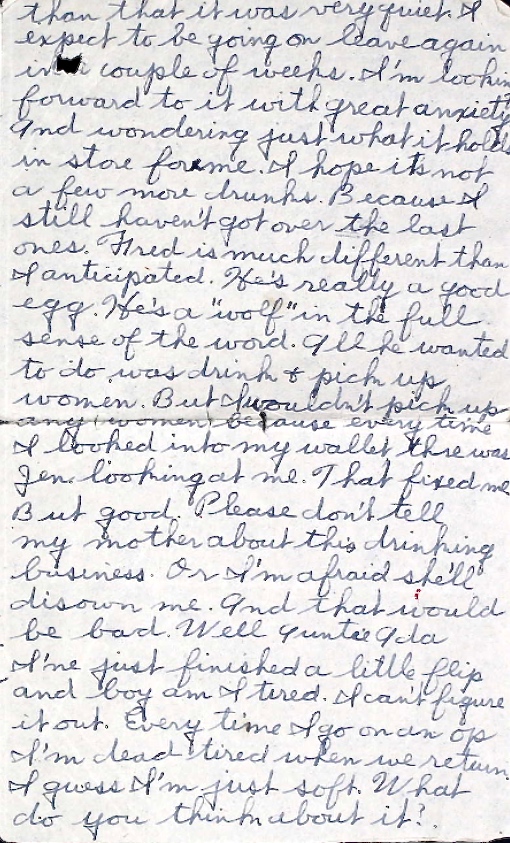 than that it was very quiet. I
expect to be going on leave again
in a couple of weeks. I'm lookin
forward to it with great anxiety
And wondering just what it holds
in store for me. I hope its not
a few more drunks. Because I
still haven't got over the last
ones. Fred is much different than
I anticipated. He's really a good
egg. He's a "wolf" in the full
sense of the word. All he wanted
to do was drink & pick up
women. But I wouldn't pick up
any women because every time
I looked into my wallet thre was
Jen looking at me. That fixed me
But good. Please don't tell
my mother about this drinking
business. Or I'm afraid she'll
disown me. And that would
be bad. Well Auntie Ada
I've just finished a little flip
and boy am I tired. I can't figure
it out. Every time I go on an op
I'm dead tired when we return
I guess I'm just soft. What
do you think about it?